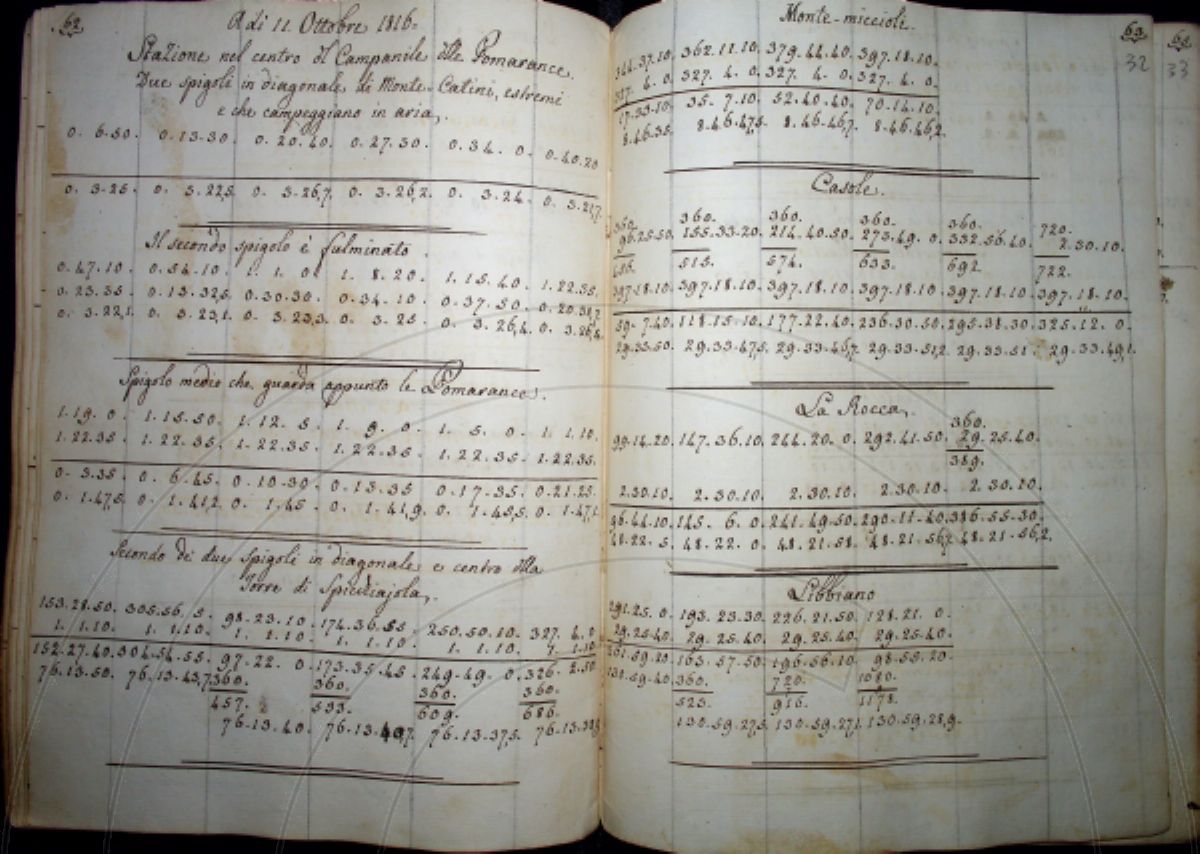 62
A dì 11 Ottobre 1816.
Stazione nel centro del Campanile delle Pomarance.
Due spigoli in diagonale di Monte-Catini, estremi
e che campeggiano in aria.
0. 6.50. 0.13.30. 0.20.40. 0.27.30. 0.34. 0. 0.40.20
0. 3.25. 0. 3.22,5 0. 3.26,7. 0. 3.26,2. 0. 3.24. 0. 3.21,7
Il secondo spigolo è fulminato.
0.47.10. 0.54.10. 1. 1. 0. 1. 8.20. 1.15.40. 1.22.35.
0.23.35. 0.13.32,5. 0.30.30. 0.34.10. 0.37.50.
0. 3.22,1. 0. 3.23,1. 0. 3.23,3. 0. 3.25. 0. 3.26,4. 0. 3.26,4
Spigolo medio che guarda appunto le Pomarance.
1.19. 0. 1.15.50. 1.12. 5. 1. 9. 0. 1. 5. 0. 1. 1.10.
1.22.35. 1.22.35. 1.22.35. 1.22.35. 1.22.35. 1.22.35.
0. 3.35. 0. 6.45. 0.10.30. 0.13.35 0.17.35. 0.21.25.
0. 1.47,5. 0. 1.41,2. 0. 1.45. 0. 1.41,9. 0. 1.45,5. 0. 1.47,1
Secondo de' due spigoli in diagonale e centro della
Torre di Spicchiajola.
153.28.50. 305.56. 5. 98.23.10. 174.36.55. 250.50.10. 327. 4.0
1. 1.10. 1. 1.10. 1. 1.10. 1. 1.10. 1. 1.10. 1. 1.10
152.27.40. 304.54.55. 97.22. 0. 173.35.45. 249.49. 0. 326. 2.50
76.13.50. 76.13.43,7. 360. 360. 360. 360.
457. 533. 609. 686.
76.13.40. 76.13.40,7. 76.13.37,5. 76.13.38,9
Monte-miccioli.
63
32
344.37.10. 362.11.10. 379.44.40. 397.18.10.
327. 4.0. 327. 4. 0. 327. 4. 0. 327. 4. 0.
17.33.10. 35. 7.10. 52.40.40. 70.14.10.
8.46.35. 8.46.47,5. 8.46.46,7. 8.46.46,2.
Casole.
360. 360. 360. 360. 360. 720.
96.25.50. 155.33.20. 214.40.50. 273.49. 0. 332.56.40. 2.30.10.
456. 515. 574. 633. 692. 722.
397.18.10. 397.18.10. 397.18.10. 397.18.10. 397.18.10. 397.18.10.
59. 7.40. 118.15.10. 177.22.40. 236.30.50. 295.38.30. 325.12. 0.
29.33.50. 29.33.47,5. 29.33.46,7. 29.33.51,2. 29.33.51. 29.33.49,1.
La Rocca.
360.
99.14.20. 147.36.10. 244.20. 0. 292.41.50. 29.25.40.
389.
2.30.10. 2.30.10. 2.30.10. 2.30.10. 2.30.10.
96.44.10. 145. 6. 0. 241.49.50. 290.11.40. 386.55.30.
48.22. 5. 48.22. 0. 48.21.58. 48.21.56,7. 48.21.56,2.
Libbiano
291.25. 0. 193.23.30. 226.21.50. 128.21. 0.
29.25.40. 29.25.40. 29.25.40. 29.25.40.
261.59.20. 163.57.50. 196.56.10. 98.55.20.
130.59.40. 360. 720. 1080.
523. 916. 1178.
130.59.27,5. 130.59.27,1. 130.59.28,9.
64
33